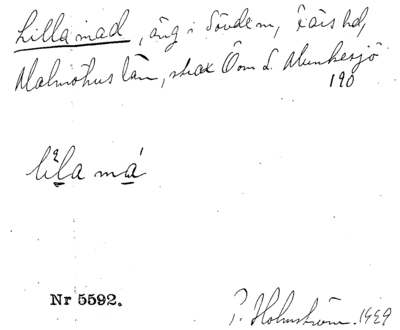 Lilla mad, äng i Sövdem, Färs hd,
Malmöhus län, strax Ö om S. Munkesjö
190
lìla má
Nr 5592.
P. Holmström. 1929